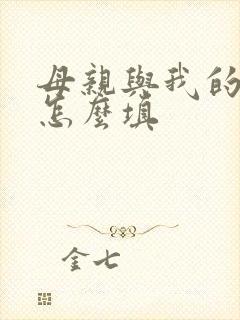 母親與我的
怎麼填
金七